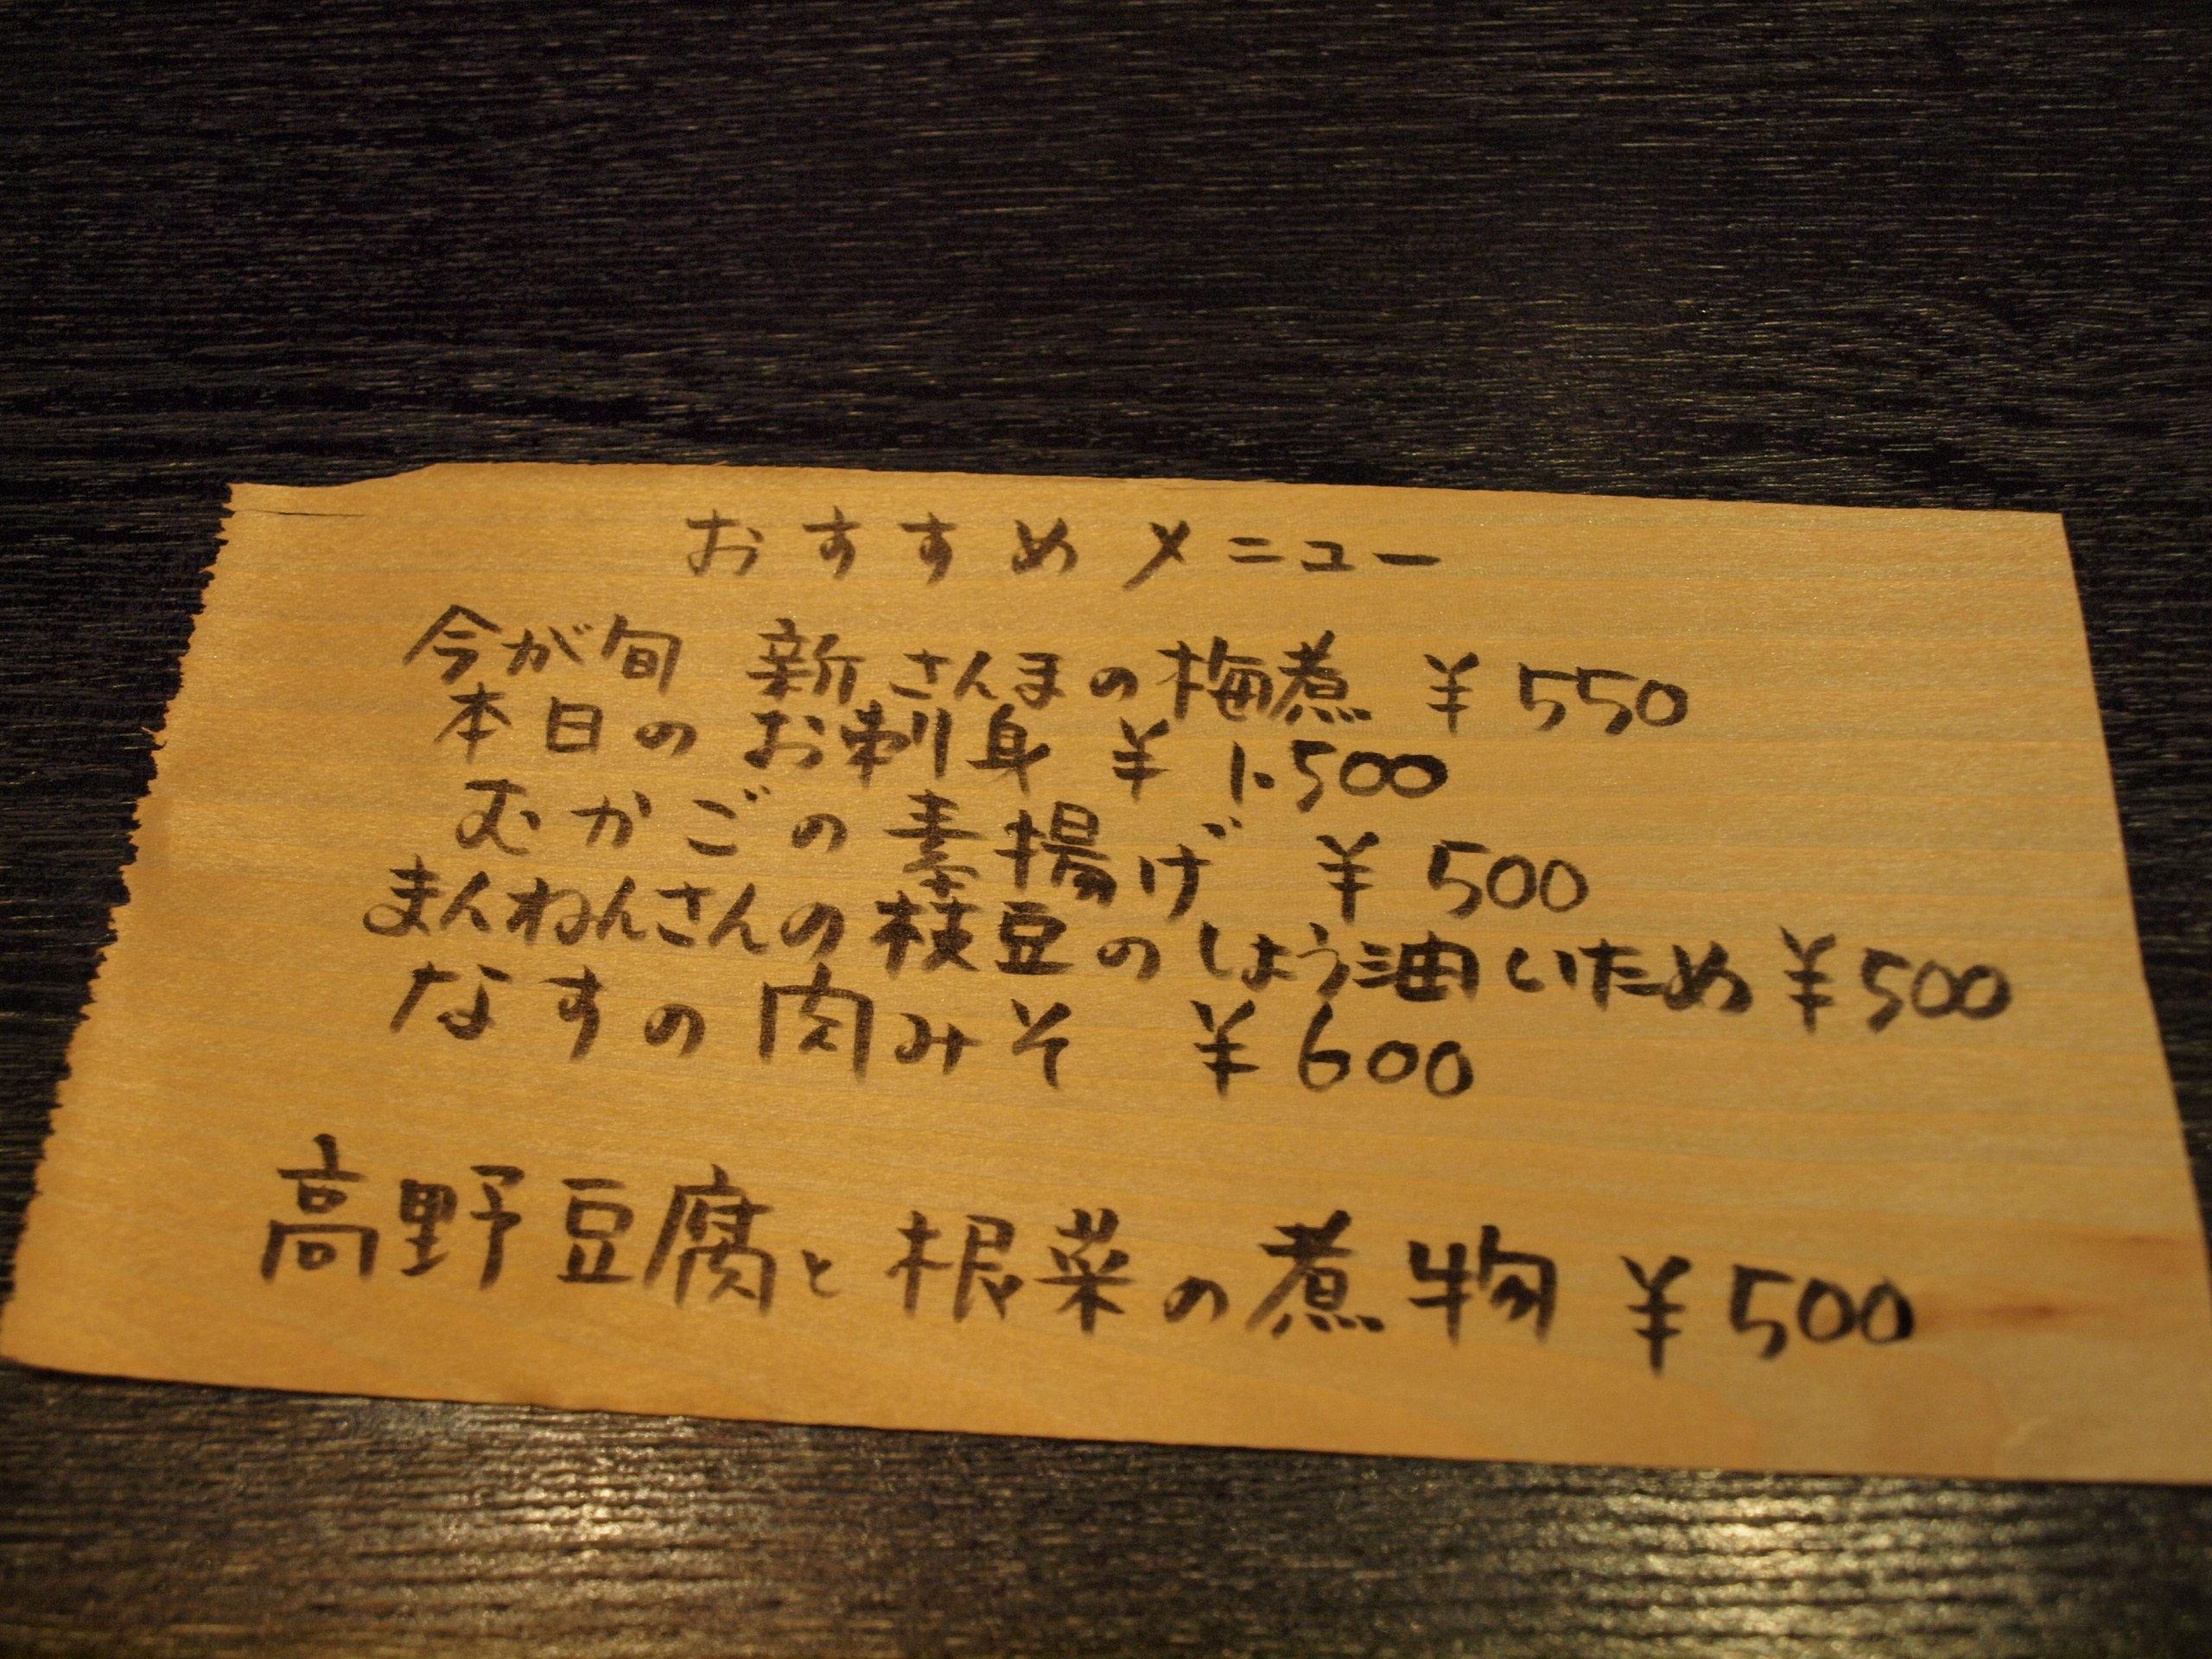 おすすめメニュー
今が旬 新さんまの梅煮 ¥550
本日のお刺身 ¥1.500
むかごの素揚げ ¥500
まんねんさんの枝豆のしょう油いため ¥500
なすの肉みそ ¥600
高野豆腐と根菜の煮物 ¥500